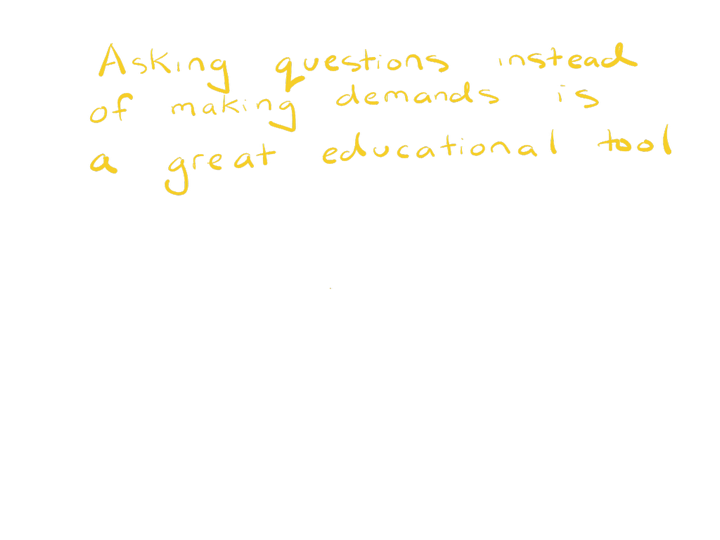 Asking questions instead
of making demands is
a great educational tool